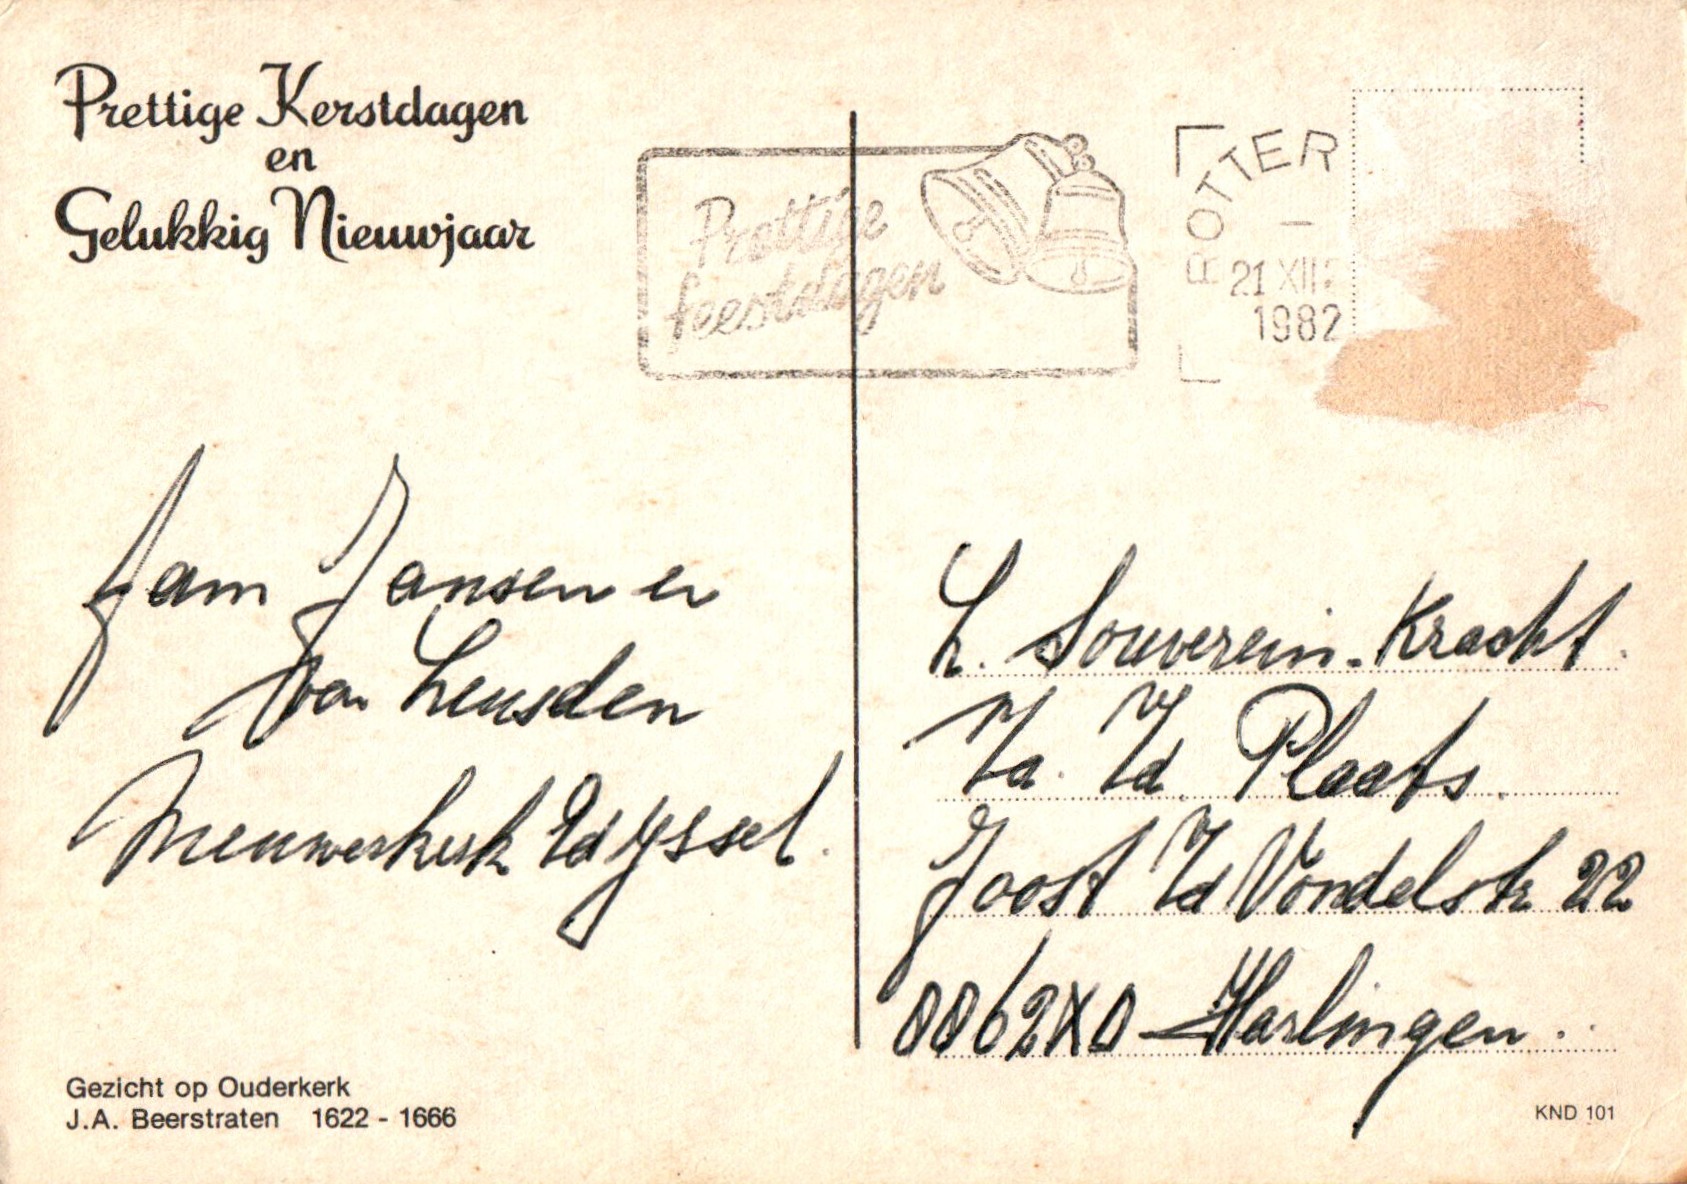 Prettige Kerstdagen
en
Gelukkig Nieuwjaar
Prettige
feestdagen
ROTTER
21 XII
1982
fam Jansen en
van Leusden
Nieuwerkerk a/d Yssel.
Gezicht op Ouderkerk
J.A. Beerstraten 1622 - 1666
h. Souverein-Kracht.
Plaats.
Joost vd Vondelstr 22
8862XD Harlingen.
KND 101